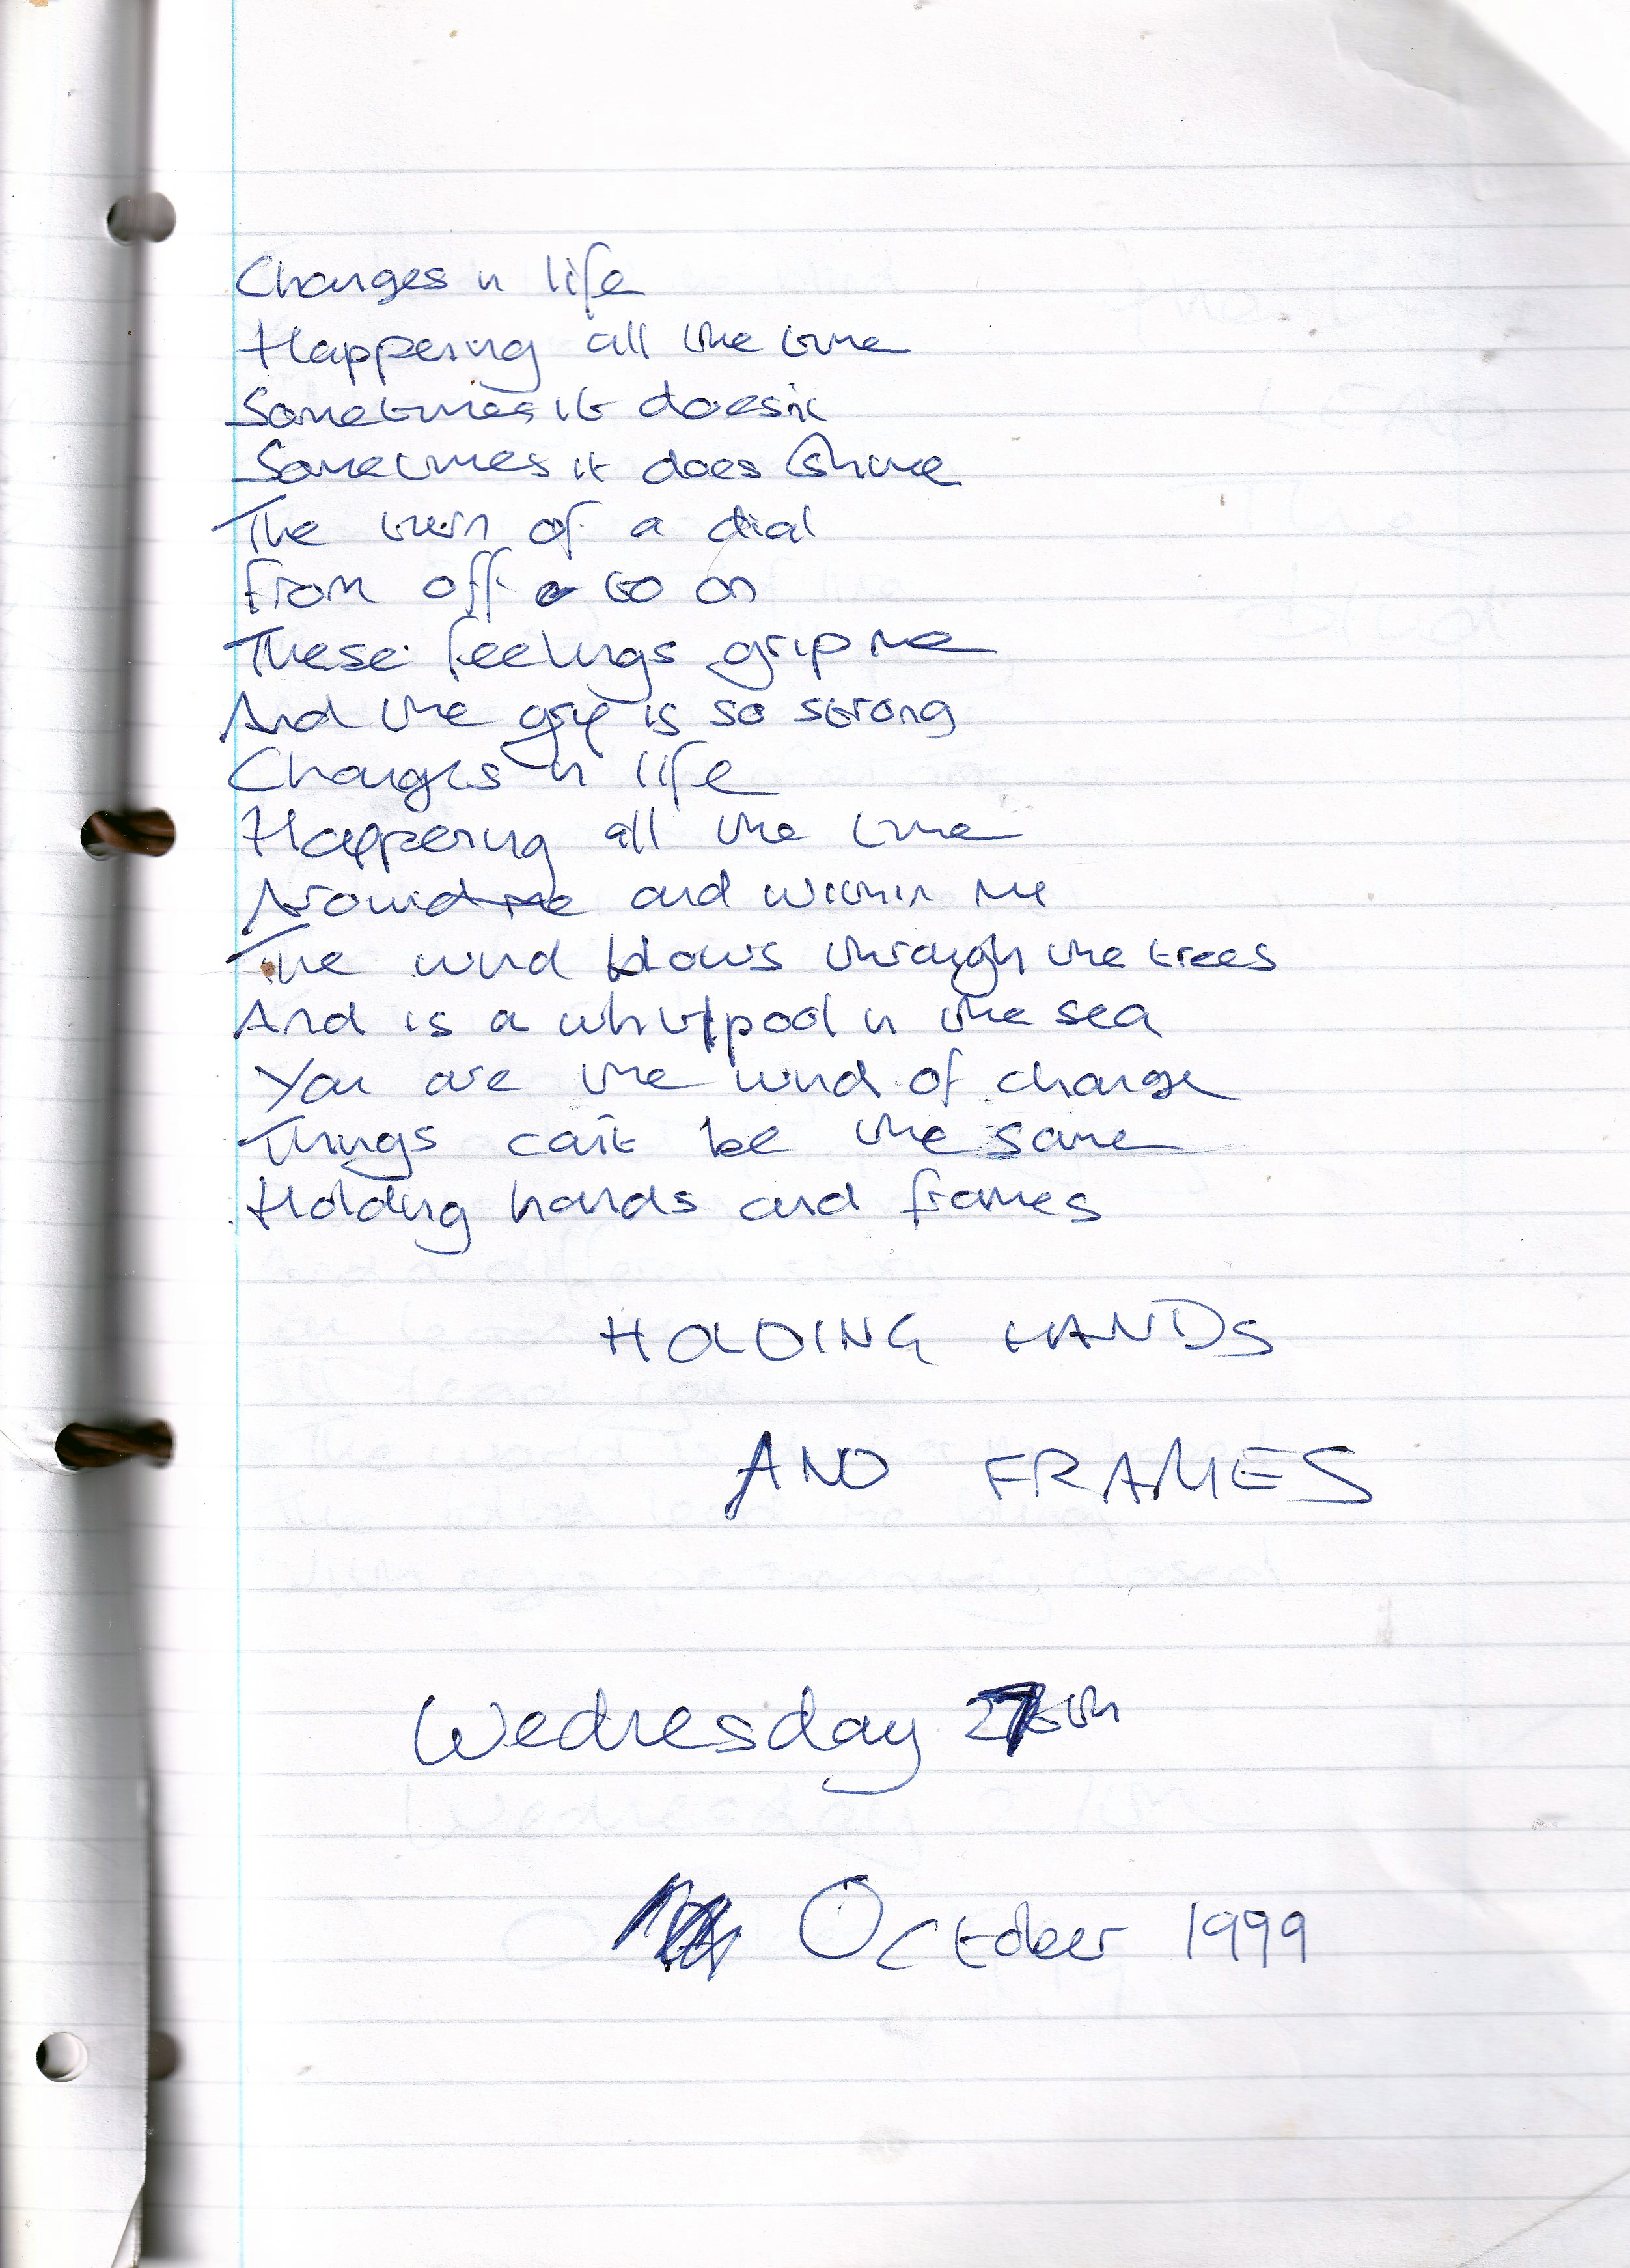 Changes in life
Happening all the time
Sometimes it doesn't
Sometimes it does shine
The turn of a dial
From off to on
These feelings grip me
And the grip is so strong
Changes in life
Happening all the time
Around me and within me
The wind blows through the trees
And is a whirlpool in the sea
You are the wind of change
Things can't be the same
Holding hands and frames
HOLDING HANDS
AND FRAMES
Wednesday 27th
October 1999